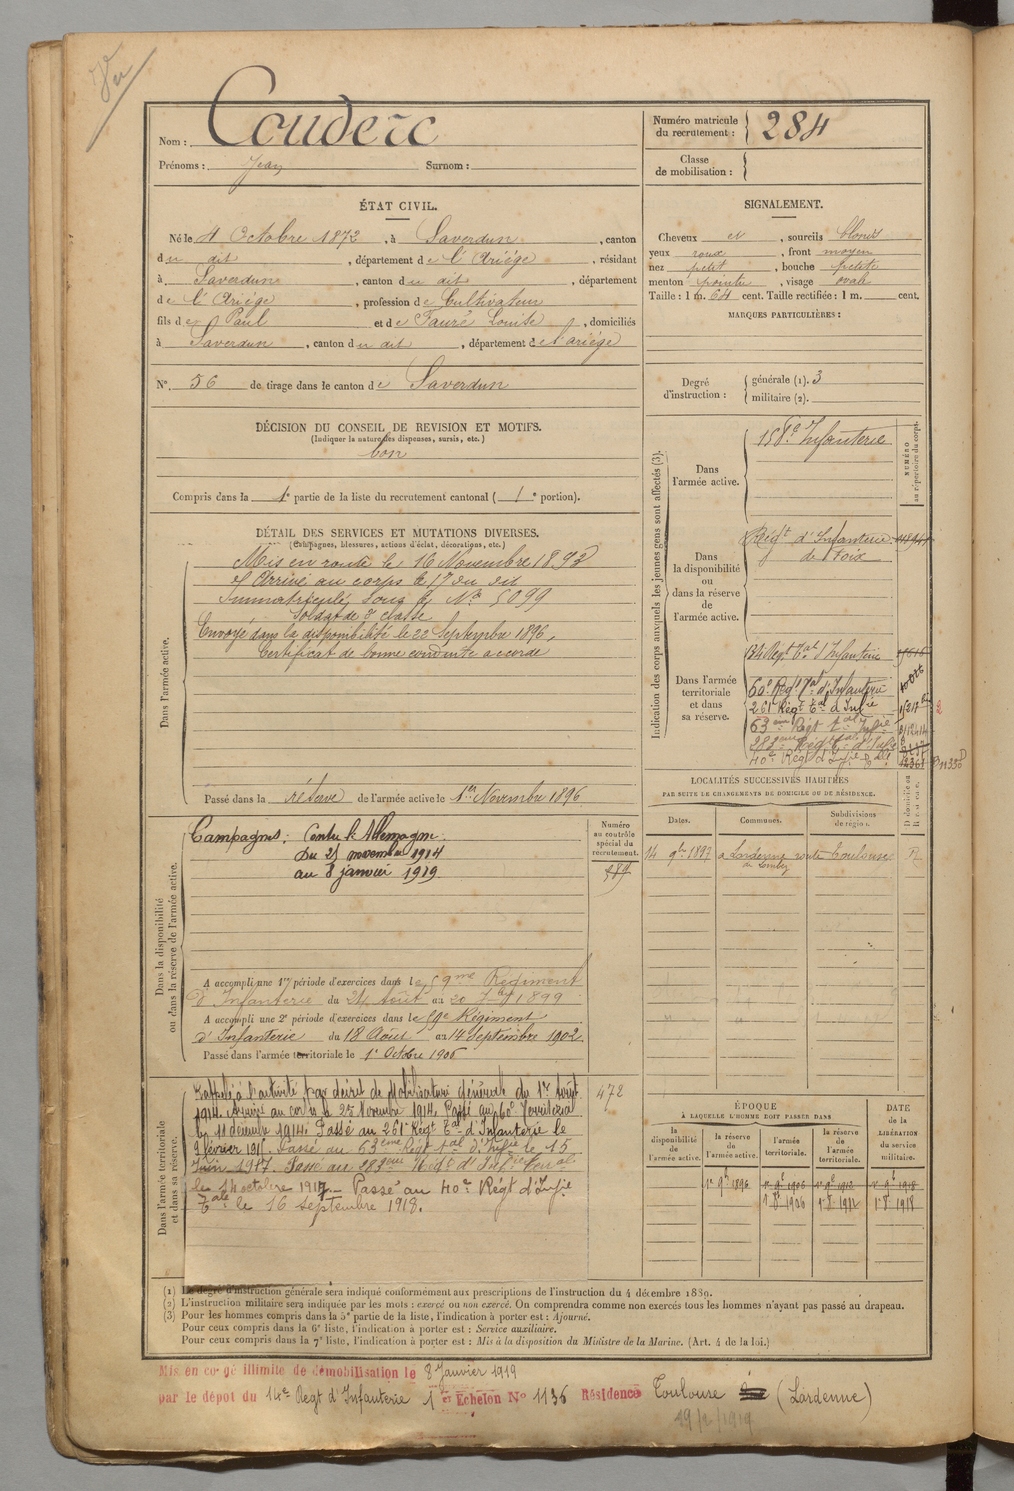 Vu
Nom : Couderc
Prénoms : Jean Surnom :
Numéro matricule du recrutement : 284
Classe de mobilisation :
ÉTAT CIVIL.
Né le 4 Octobre 1872, à Saverdun, canton
du dit, département de l'Ariège, résidant
à Saverdun, canton du dit, département
de l'Ariège, profession de Cultivateur
fils de Paul et de Fauré Louise, domiciliés
à Saverdun, canton du dit, département de l'ariège
N° 56 de tirage dans le canton de Saverdun
SIGNALEMENT.
Cheveux et, sourcils blonds
yeux roux, front moyen
nez petit, bouche petite
menton pointu, visage ovale
Taille : 1 m. 64 cent. Taille rectifiée : 1 m. cent.
MARQUES PARTICULIÈRES :
Degré d'instruction : générale (1). 3
militaire (2).
DÉCISION DU CONSEIL DE REVISION ET MOTIFS.
(Indiquer la nature des dispenses, sursis, etc.)
bon
Compris dans la 1e partie de la liste du recrutement cantonal (1e portion).
DÉTAIL DES SERVICES ET MUTATIONS DIVERSES.
(Campagnes, blessures, actions d'éclat, décorations, etc.)
Dans l'armée active.
Mis en route le 16 Novembre 1893
Arrivé au corps le 17 du dit
Immatriculé sous le N° 5099
Soldat de 2e classe
Envoyé dans la disponibilité le 22 Septembre 1896,
Certificat de bonne conduite accordé
Passé dans la réserve de l'armée active le 1er Novembre 1896
Indication des corps auxquels les jeunes gens sont affectés (3).
NUMÉRO au répertoire du corps.
Dans l'armée active.
158e Infanterie
Dans la disponibilité ou dans la réserve de l'armée active.
Régt d'Infanterie
de Foix
Dans l'armée territoriale et dans sa réserve.
134 Régt Tal d'Infanterie
60e Régt Tal d'Infanterie
261 Régt Tal d'Infie
63ème Régt tal Infie
283ème Régt Tal d'Infie
40e Régt d'Infie Tale
LOCALITÉS SUCCESSIVES HABITÉES
PAR SUITE DE CHANGEMENTS DE DOMICILE OU DE RÉSIDENCE.
Dates. Communes. Subdivisions de région. D domicile ou R résidence.
14 9bre 1897 à Lardenne route de Lombez Toulouse R
Dans la disponibilité ou dans la réserve de l'armée active.
Numéro au contrôle spécial du recrutement.
Campagnes : Contre l'Allemagne
Du 21 novembre 1914
au 8 janvier 1919
A accompli une 1re période d'exercices dans le 59me Régiment
d'Infanterie du 24 Août au 20 7bre 1899
A accompli une 2e période d'exercices dans le 59e Régiment
d'Infanterie du 18 Août au 14 Septembre 1902.
Passé dans l'armée territoriale le 1er Octobre 1906
Dans l'armée territoriale et dans sa réserve.
472
Rappelé à l'activité par décret de Mobilisation Générale du 1er août
1914. Arrivé au corps le 21 Novembre 1914. Passé au 60e Territorial
le 11 décembre 1914. Passé au 261e Régt Tal d'Infanterie le
9 février 1916. Passé au 63ème Régt tal d'Infie le 15
Juin 1917. Passé au 283ème Régt d'Infie Terral
le 14 octobre 1917. Passé au 40e Régt d'Infie
Tale le 16 septembre 1918.
ÉPOQUE
À LAQUELLE L'HOMME DOIT PASSER DANS
la disponibilité de l'armée active. la réserve de l'armée active. l'armée territoriale. la réserve de l'armée territoriale.
DATE de la LIBÉRATION du service militaire.
1er 9b 1896 1er 9b 1906 1er 9b 1912 1er 9b 1918
1 8 1906 1 8 1912 1 8 1918
(1) Le degré d'instruction générale sera indiqué conformément aux prescriptions de l'instruction du 4 décembre 1889.
(2) L'instruction militaire sera indiquée par les mots : exercé ou non exercé. On comprendra comme non exercés tous les hommes n'ayant pas passé au drapeau.
(3) Pour les hommes compris dans la 5e partie de la liste, l'indication à porter est : Ajourné.
Pour ceux compris dans la 6e liste, l'indication à porter est : Service auxiliaire.
Pour ceux compris dans la 7e liste, l'indication à porter est : Mis à la disposition du Ministre de la Marine. (Art. 4 de la loi.)
Mis en congé illimité de démobilisation le 8 Janvier 1919
par le dépôt du 14e Régt d'Infanterie 1er Echelon N° 1136 Résidence Toulouse (Lardenne)